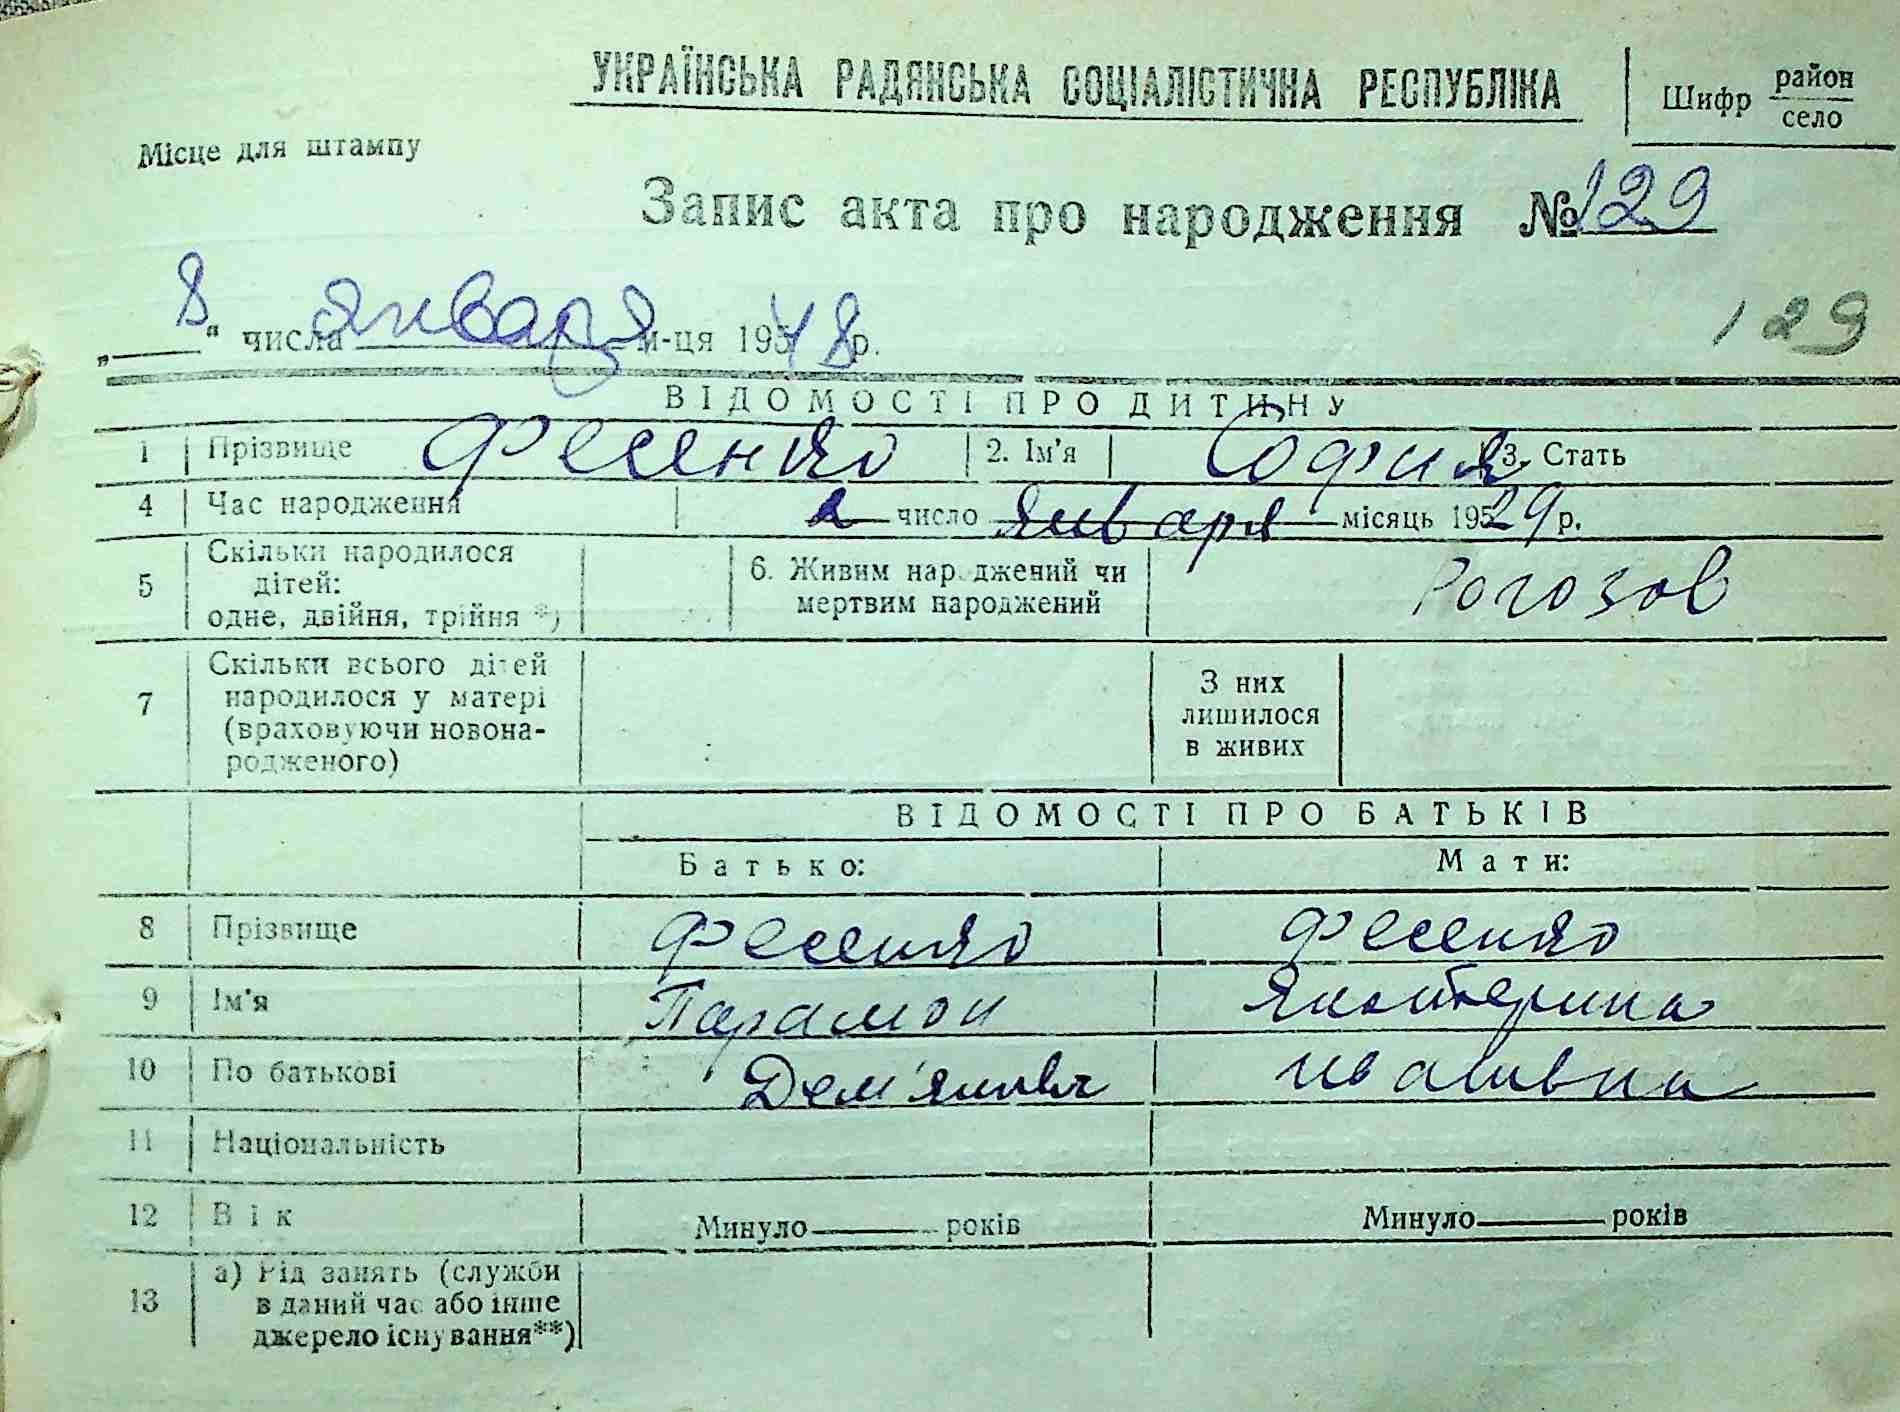 УКРАЇНСЬКА РАДЯНСЬКА СОЦІАЛІСТИЧНА РЕСПУБЛІКА
Шифр район
село
Місце для штампу
Запис акта про народження № 129
„8“ числа января м-ця 1948 р.
129
ВІДОМОСТІ ПРО ДИТИНУ
1 Прізвище Фесенко 2. Ім'я София 3. Стать
4 Час народження 2 число января місяць 1929 р.
5 Скільки народилося дітей: одне, двійня, трійня *) 6. Живим народжений чи мертвим народжений Рогозов
7 Скільки всього дітей народилося у матері (враховуючи новона-родженого) З них лишилося в живих
ВІДОМОСТІ ПРО БАТЬКІВ
Батько: Мати:
8 Прізвище Фесенко Фесенко
9 Ім'я Парамон Якатерина
10 По батькові Дем'янович Ивановна
11 Національність
12 Вік Минуло років Минуло років
13 а) Рід занять (служби в даний час або інше джерело існування**)